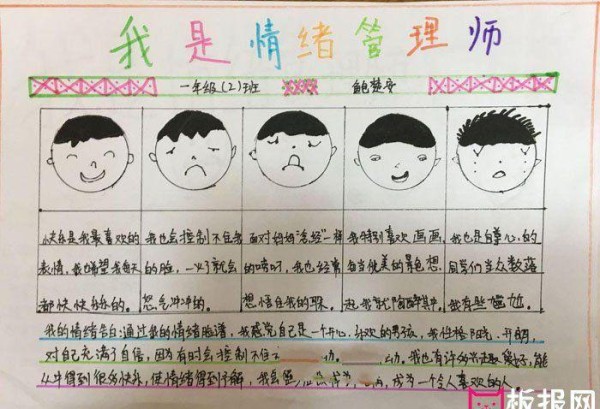 我是情绪管理师
一年级(2)班 鲍楚安
快乐是我最喜欢的
表情,我希望我每天
都快快乐乐的。
我也会控制不住我
的脸,一火了就会
怒气冲冲的。
面对妈妈"念经"一样
的唠叨,我也经常
想捂住我的耳朵。
我特别喜欢画画,
每当优美的景色
起,我就陶醉其中。
我也是自尊心的
同学们当众数落
我有些尴尬。
我的情绪告白:通过我的情绪脸谱,我感觉自己是一个开心、乐观的男孩,我性格阳光、开朗,
对自己充满了自信,因为有时会控制不住 我也有许多 能
从中得到很多快乐,使情绪得到缓解,我会 成为一个令人喜欢的人。
板报网